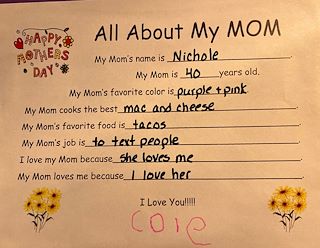 HAPPY
MOTHERS
DAY
All About My MOM
My Mom's name is Nichole.
My Mom is 40 years old.
My Mom's favorite color is purple + pink.
My Mom cooks the best mac and cheese.
My Mom's favorite food is tacos.
My Mom's job is to text people.
I love my Mom because she loves me.
My Mom loves me because I love her.
I Love You!!!!!
Cole